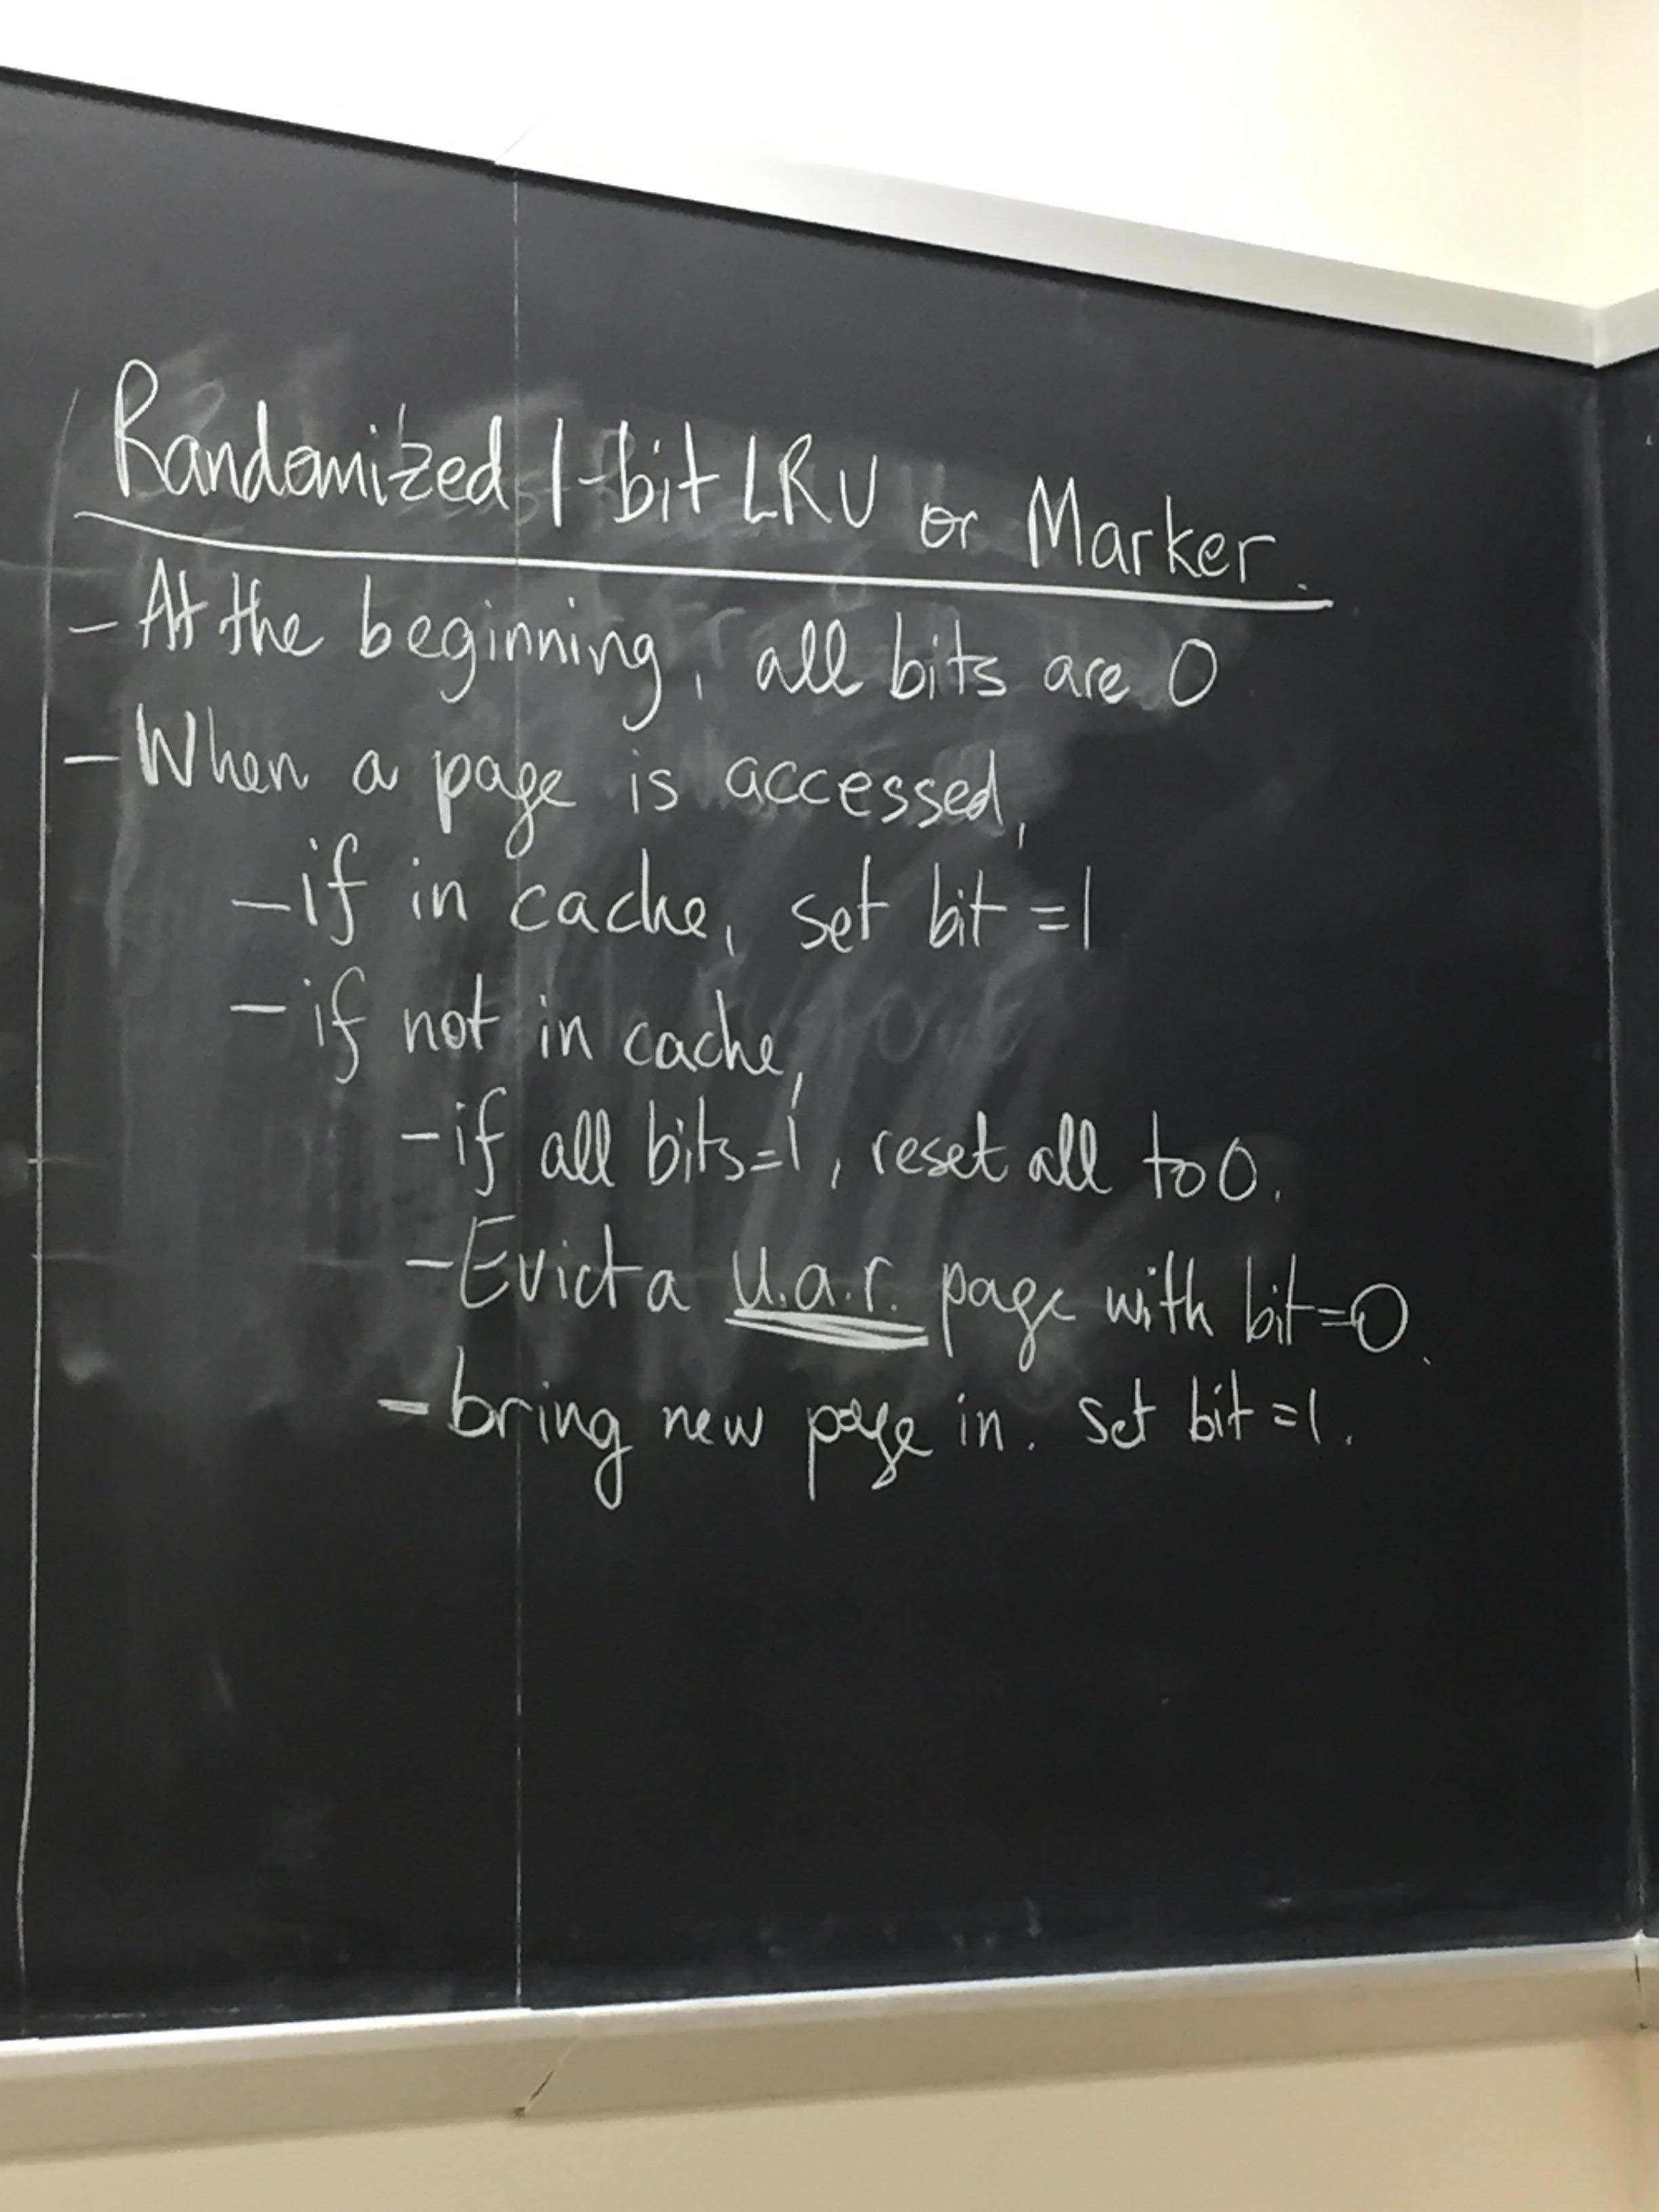 Randomized 1-bit LRU or Marker.
- At the beginning, all bits are 0
- When a page is accessed,
- if in cache, set bit = 1
- if not in cache,
- if all bits=1, reset all to 0.
- Evict a u.a.r. page with bit=0.
- bring new page in. set bit = 1.